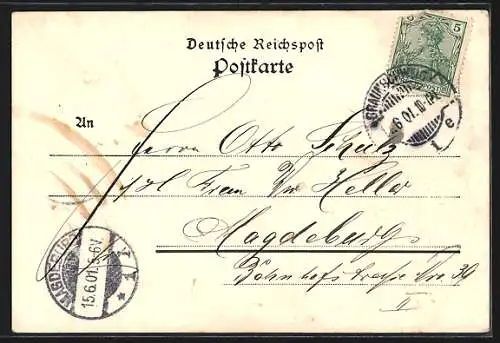 Deutsche Reichspost
Postkarte
5
BRAUNSCHWEIG
6 01. 10-11
1 e
An
Herrn Otto Schulz
Frau Ww Keller
Magdeburg
Bahnhofstrasse No 39
II
MAGDEBURG
15.6.01. 5-6V
1